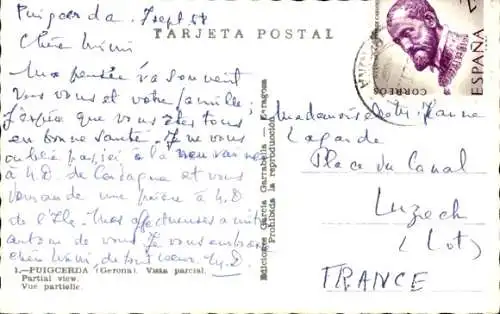 Puigcerda, 7 sept 58
TARJETA POSTAL
Chère Mimi
Ma pensée va souvent
vers vous et votre famille,
J'espère que vous êtes tous
en bonne santé. Je ne vous
oublie pas ici à la neuvaine
à N.D. de Cerdagne et vous
demande une prière à N.D
de l'Ile. Mes affectueuses
autour de vous. Je vous embrasse
chère Mimi, de tout coeur. M.D.
1.—PUIGCERDA (Gerona). Vista parcial.
Partial view.
Vue partielle.
Ediciones García Garrabella — Zaragoza
Prohibida la reproducción
CORREOS
ESPAÑA
Mademoiselle Jeanne
Lagarde
Place du Canal
Luzech
(Lot)
FRANCE